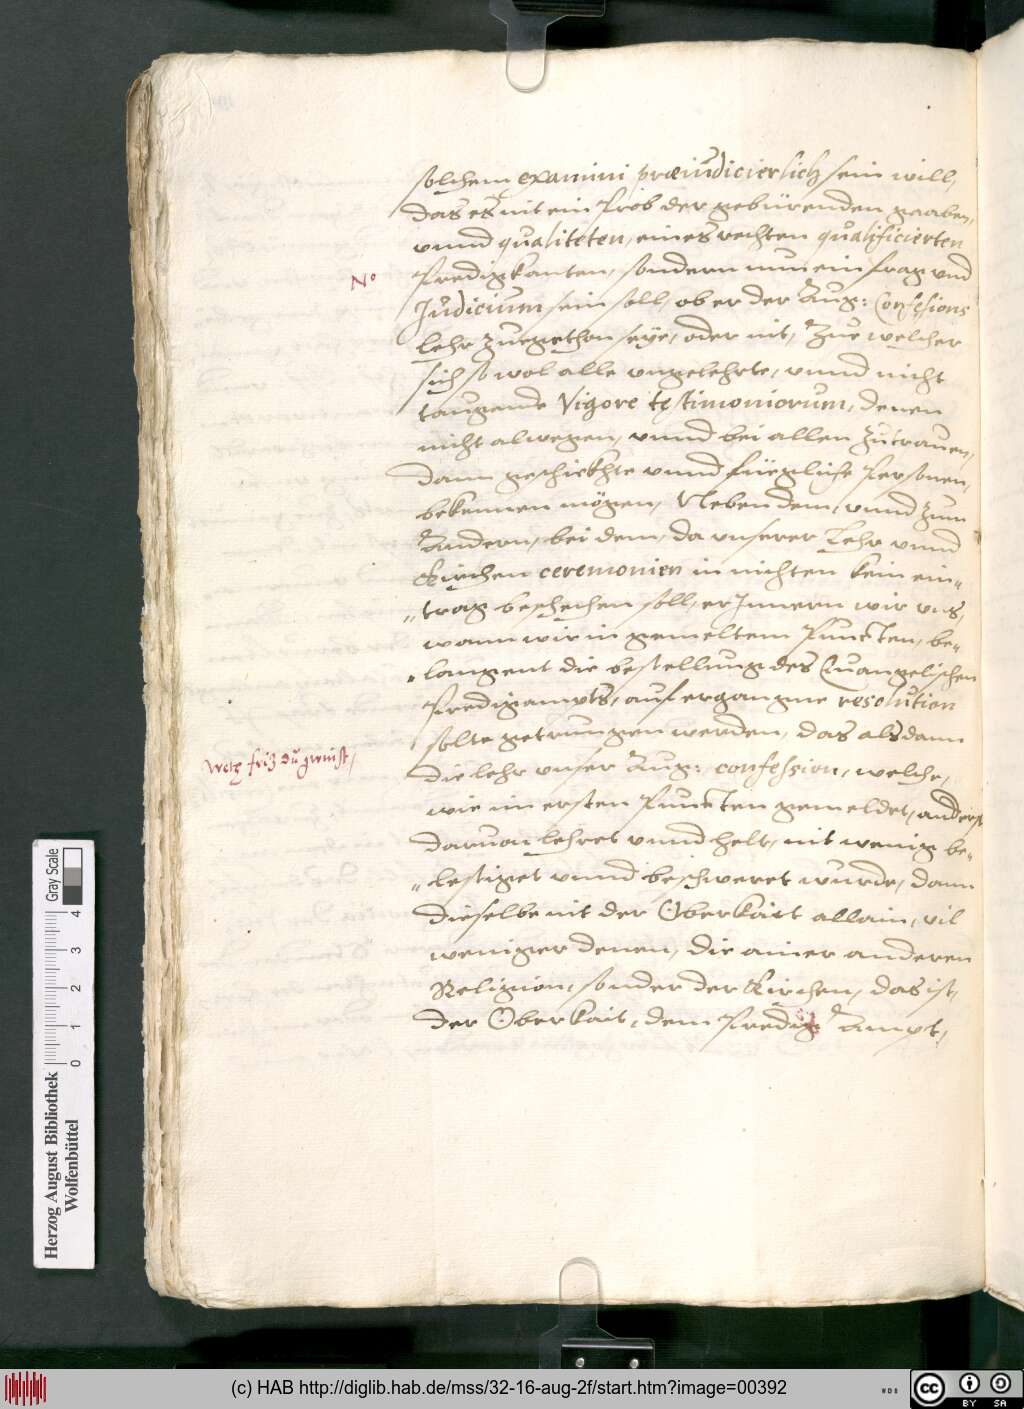 solchem examini præiudicierlich sein will,
das es nit ein Prob der gebürenden gaaben,
vnnd qualiteten, eines rechten qualificierten
N°
Predigkanten, sondern nun ein frag vnd
Judicium sein soll, ob er der Aug: Confeßions
lehr zuegethon seÿe, oder nit, Zue welcher
sich so wol alle vngelehrte, vnnd nicht
taugende Vigore testimoniorum, denen
nicht alwegen, vnnd bei allen zutrauen,
dann geschickhte vnnd füegliche Personen,
bekennen mögen, Neben dem, vnnd zum
Andern, bei dem, da vnserer Lehr vnnd
Kirchen ceremonien in nichten kein ein„
„trag beschechen soll, erInnern wir vns,
wann wir in gemeltem Puncten, be„
„langent die bestellung des Euangelischen
Predigampts, auf ergangne resolution
solte getrungen werden, das alsdann
die lehr vnser Aug: confession, welche,
wie im ersten Puncten gemeldet, anderst
daruon lehret vnnd helt, nit wenig be„
„lestiget vnnd beschweret wurde, dann
dieselbe nit der Oberkait allain, vil
weniger denen, die ainer anderen
Religion, sonder der Kirchen, das ist,
der Oberkait, dem Predig Ampt,
Herzog August Bibliothek
Wolfenbüttel
Gray Scale
0 1 2 3 4
(c) HAB http://diglib.hab.de/mss/32-16-aug-2f/start.htm?image=00392
WDB
cc BY SA